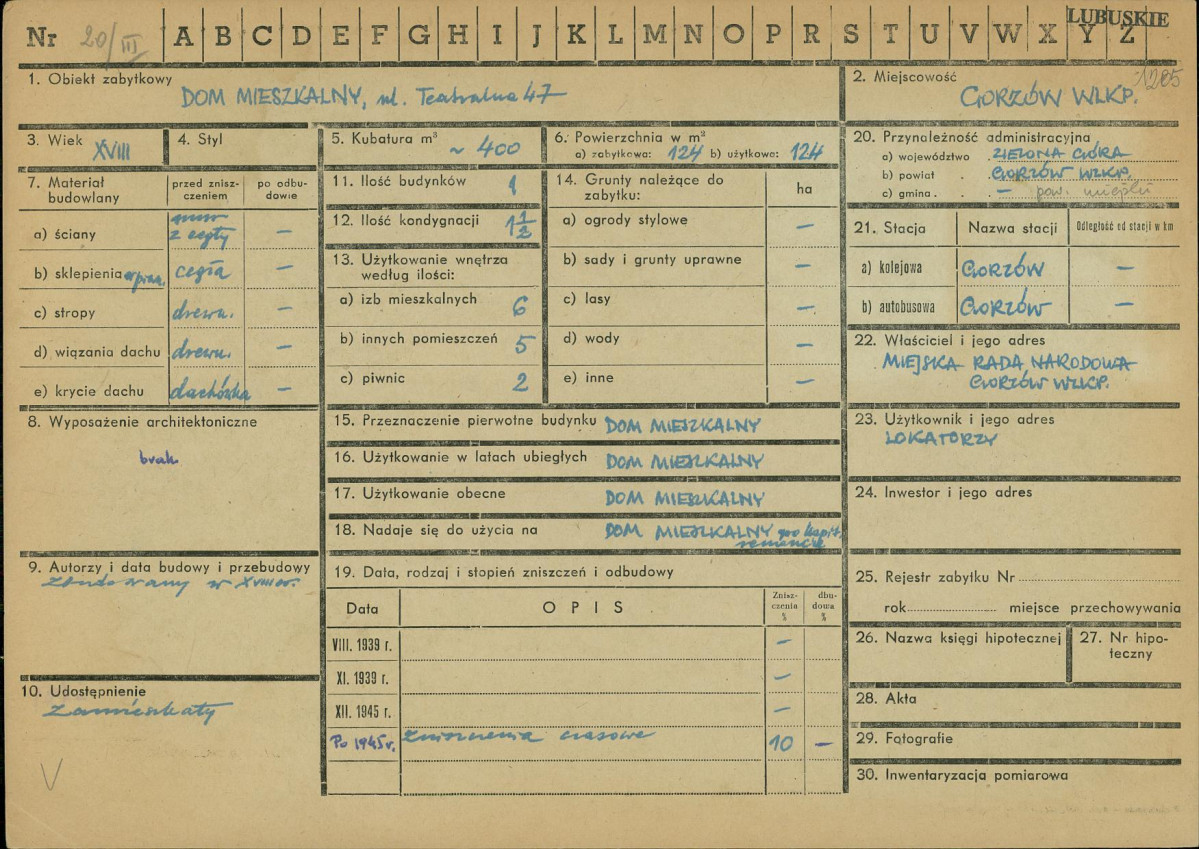 Nr 20/III A B C D E F G H I J K L M N O P R S T U V W X Y Z LUBUSKIE
1285
1. Obiekt zabytkowy
DOM MIESZKALNY, ul. Teatralna 47
2. Miejscowość
GORZÓW WLKP.
3. Wiek XVIII
4. Styl
5. Kubatura m³ ~ 400
6. Powierzchnia w m²
a) zabytkowa: 124 b) użytkowa: 124
20. Przynależność administracyjna
a) województwo ZIELONA GÓRA
b) powiat . GORZÓW WLKP.
c) gmina . — pow. miejski
7. Materiał budowlany
przed zniszczeniem
po odbudowie
a) ściany mur z cegły —
b) sklepienia w piwn. cegła —
c) stropy drewn. —
d) wiązania dachu drewn. —
e) krycie dachu dachówka —
8. Wyposażenie architektoniczne
brak
9. Autorzy i data budowy i przebudowy
zbudowany w XVIII w.
10. Udostępnienie
zamieszkały
V
11. Ilość budynków 1
12. Ilość kondygnacji 1 1/2
13. Użytkowanie wnętrza
według ilości:
a) izb mieszkalnych 6
b) innych pomieszczeń 5
c) piwnic 2
14. Grunty należące do
zabytku: ha
a) ogrody stylowe —
b) sady i grunty uprawne —
c) lasy —
d) wody —
e) inne —
15. Przeznaczenie pierwotne budynku DOM MIESZKALNY
16. Użytkowanie w latach ubiegłych DOM MIESZKALNY
17. Użytkowanie obecne DOM MIESZKALNY
18. Nadaje się do użycia na DOM MIESZKALNY po kapit.
remoncie
19. Data, rodzaj i stopień zniszczeń i odbudowy
Data OPIS Zniszczenia % dbudowa %
VIII. 1939 r. —
XI. 1939 r. —
XII. 1945 r. —
Po 1945 r. zniszczenia czasowe 10 —
21. Stacja Nazwa stacji Odległość od stacji w km
a) kolejowa GORZÓW —
b) autobusowa GORZÓW —
22. Właściciel i jego adres
MIEJSKA RADA NARODOWA
GORZÓW WLKP.
23. Użytkownik i jego adres
LOKATORZY
24. Inwestor i jego adres
25. Rejestr zabytku Nr
rok miejsce przechowywania
26. Nazwa księgi hipotecznej
27. Nr hipoteczny
28. Akta
29. Fotografie
30. Inwentaryzacja pomiarowa